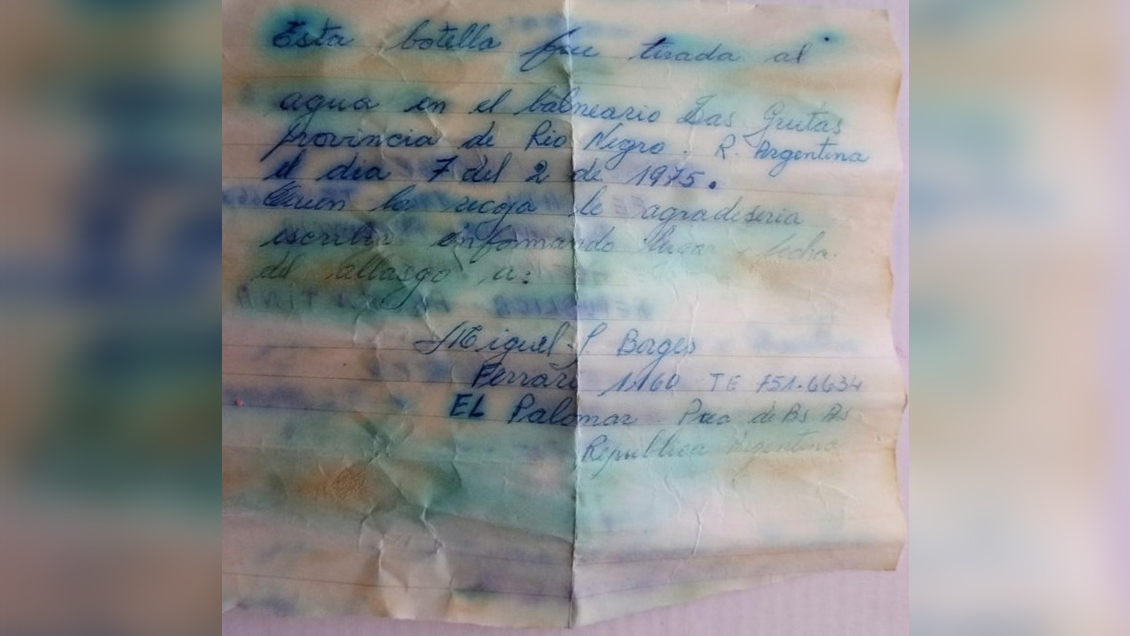 Esta botella fue tirada al
agua en el balneario Las Grutas
provincia de Rio Negro. R. Argentina
el dia 7 del 2 de 1975.
Quien la recoja le agradeseria
escribir informando lugar fecha
del allasgo a:
Miguel J Borges
Ferrari 1160 TE 751-6634
EL Palomar Pcia de Bs As
Republica Argentina
REPUBLICA ARGENTINA